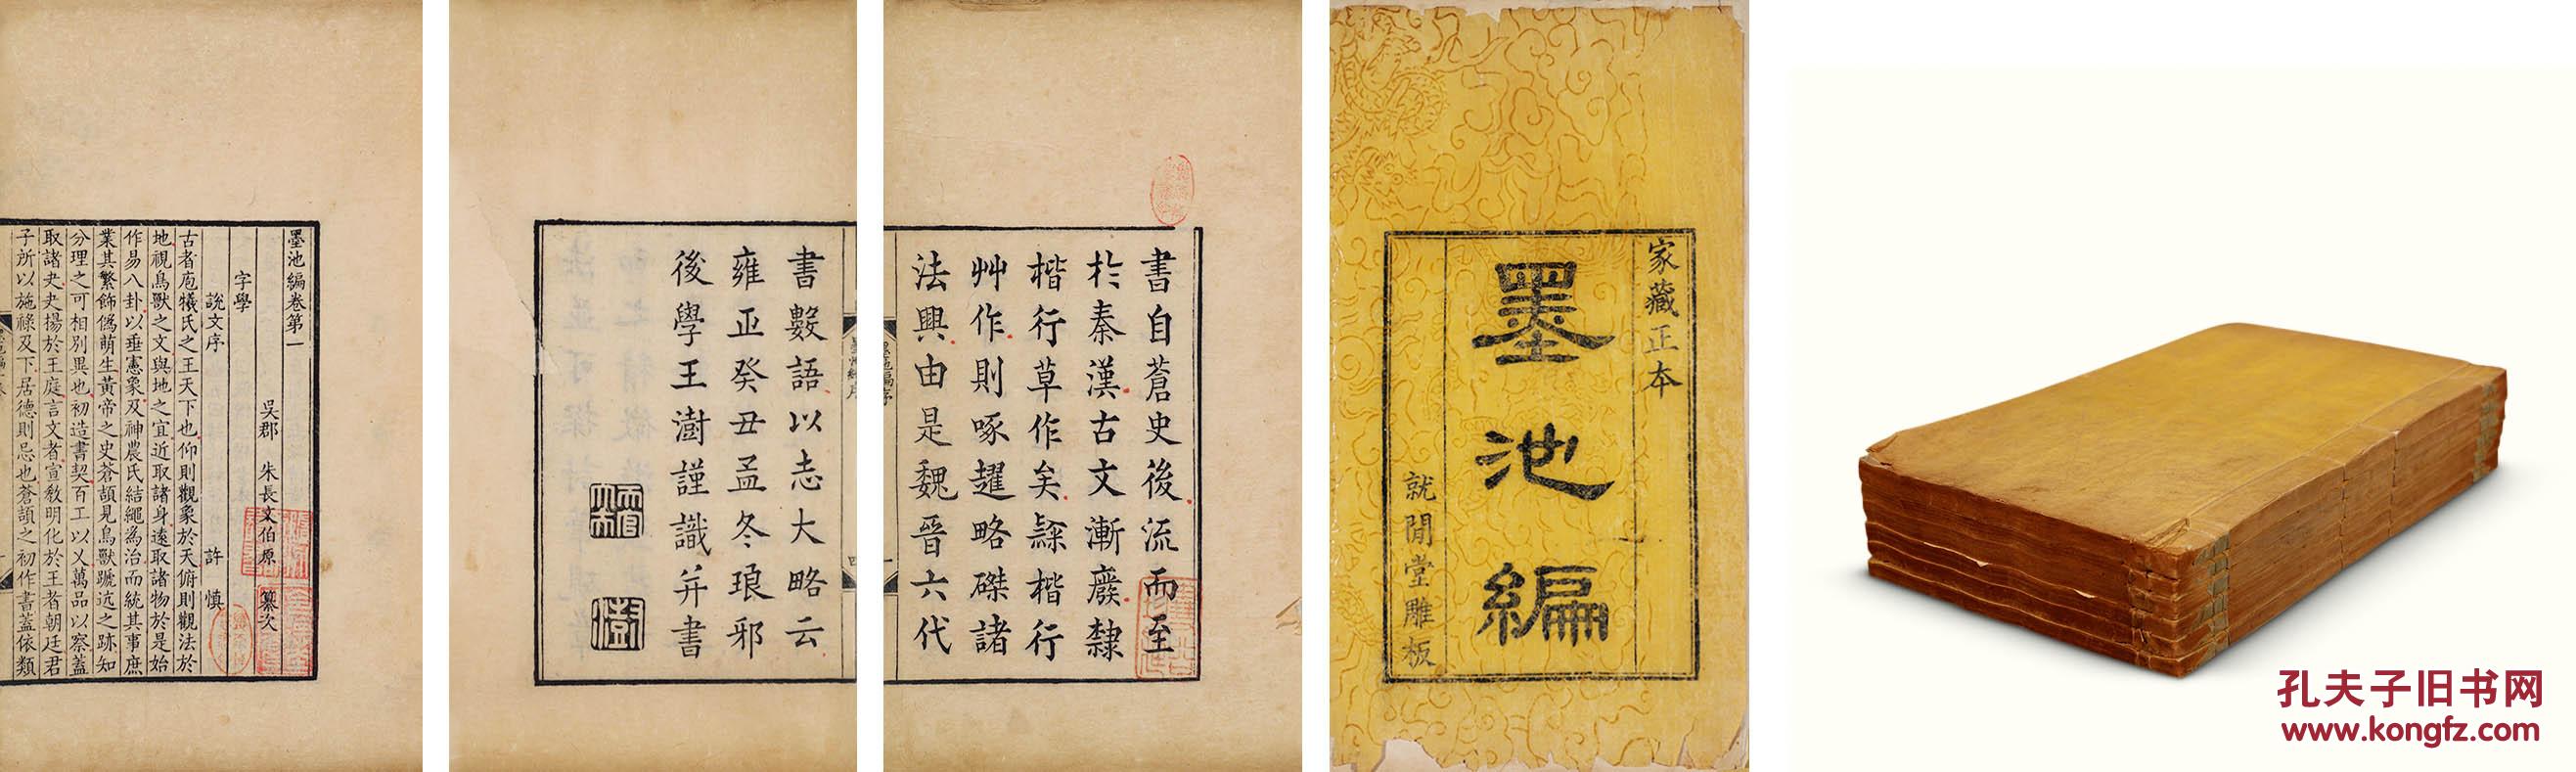 家藏正本
墨池編
就閒堂雕板
書自蒼史後流而至
於秦漢古文漸廢隸
楷行草作矣繇楷行
艸作則啄趯略磔諸
法興由是魏晉六代
墨池編序
書數語以志大略云
雍正癸丑孟冬琅邪
後學王澍謹識并書
墨池編卷第一
吳郡 朱長文伯原 纂次
字學
說文序 許 慎
古者庖犧氏之王天下也仰則觀象於天俯則觀法於
地視鳥獸之文與地之宜近取諸身遠取諸物於是始
作易八卦以垂憲象及神農氏結繩為治而統其事庶
業其繁飾僞萌生黃帝之史蒼頡見鳥獸蹏迒之跡知
分理之可相別異也初造書契百工以乂萬品以察蓋
取諸夬夬揚於王庭言文者宣敎明化於王者朝廷君
子所以施祿及下居德則忌也蒼頡之初作書蓋依類
孔夫子旧书网
www.kongfz.com